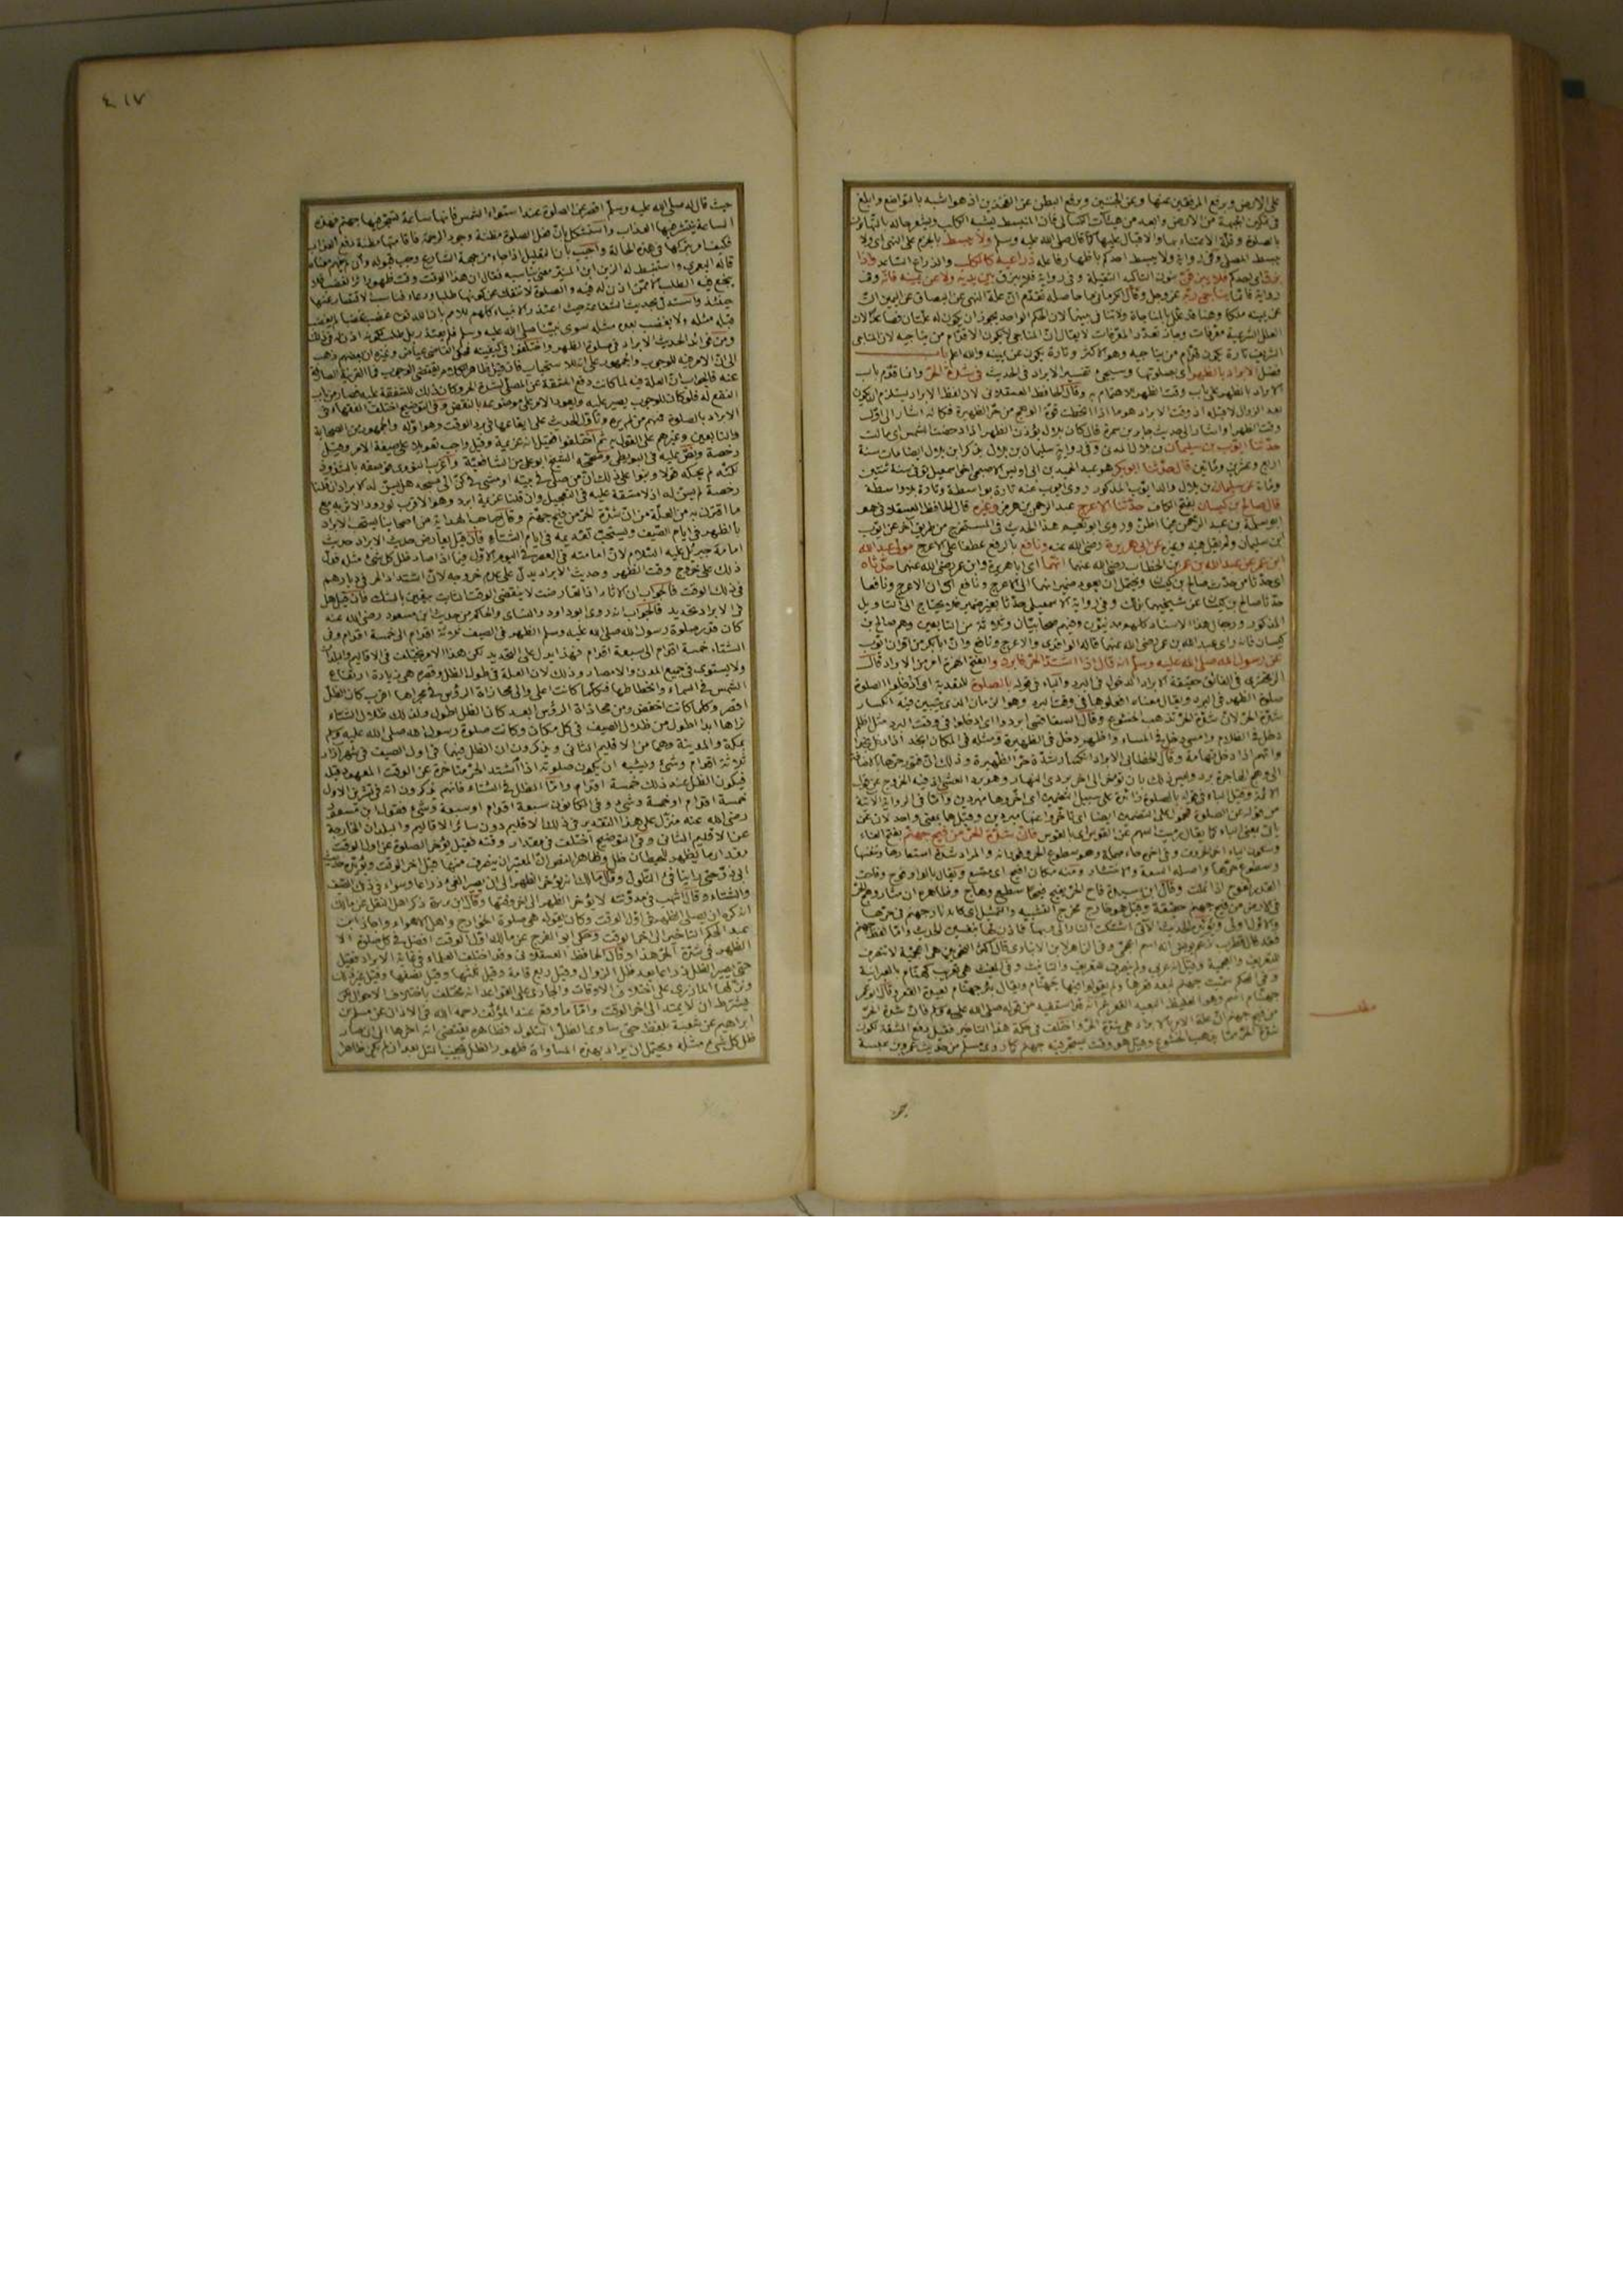 على الارض ويرفع المرفقين عنها وعن الجنبين ويرفع البطن عن الفخذين اذ هو اشبه بالتواضع وابلغ
في تمكين الجبهة من الارض وابعد من هيئات الكسالى فان المنبسط يشبه الكلب ويشعر حاله بالتهاون
بالصلوة وقلة الاعتناء بها والاقبال عليها كما قال صلى الله عليه وسلم ولا يبسط بالجزم على النهي اى ولا
يبسط المصلى وفى رواية ولا يبسط احدكم باظهار فاعله ذراعيه كالكلب والذراع الساعد واذا
بزق احدكم فلا يبزقن بنون التأكيد الثقيلة وفى رواية فلا يبزق بين يديه ولا عن يمينه فانه وفى
رواية فانما يناجى ربه عز وجل وقال الكرمانى ما حاصله تقدم ان علة النهى عن البصاق عن اليمين ان
عن يمينه ملكا وههنا قد علل بالمناجاة ولا تنافى بينهما لان الحكم الواحد يجوز ان يكون له علتان
العلل الشرعية معرفات وجاز تعدد المعرفات لا يقال ان المناجى لا يكون الا قدام من يناجيه لان المناجى
الشريف تارة يكون قدام من يناجيه وهو الاكثر وتارة يكون عن يمينه والله اعلم باب
فضل الابراد بالظهر اى بصلوتها وسيجئ تفسير الابراد فى الحديث فى شدة الحر وانما قدم باب
الابراد بالظهر على باب وقت الظهر للاهتمام به وقال الحافظ العسقلانى لان لفظ الابراد يستلزم ان يكون
بعد الزوال لا قبله اذ وقت الابراد هو ما اذا انحطت قوة الوهج من حر الظهيرة فكانه اشار الى اول
وقت الظهر او اشار الى حديث جابر بن سمرة قال كان بلال يؤذن الظهر اذا دحضت الشمس اى مالت
حدثنا ايوب بن سليمان بن بلال المدنى وفى رواية سليمان بن بلال بذكر ابن بلال ايضا مات سنة
اربع وعشرين ومائتين قال حدثنا ابو بكر هو عبد الحميد بن ابى اويس الاصبحى اخو اسمعيل توفى سنة ثنتين
ومائة عن سليمان بن بلال والد ايوب المذكور روى ايوب عنه تارة بواسطة وتارة بلا واسطة
قال صالح بن كيسان بفتح الكاف حدثنا الاعرج عبد الرحمن بن هرمز وغيره قال الحافظ العسقلانى هو
ابو سلمة بن عبد الرحمن فيما اظن وروى ابو نعيم هذا الحديث فى المستخرج من طريق آخر عن ايوب
ابن سليمان ولم يقل فيه وغيره عن ابى هريرة رضى الله عنه ونافع بالرفع عطفا على الاعرج مولى عبد الله
ابن عمر عن عبد الله بن عمر بن الخطاب رضى الله عنهما انهما اى ابا هريرة وابن عمر رضى الله عنهما حدثاه
اى حدثا من حدث صالح بن كيسان ويحتمل ان يعود ضمير انهما الى الاعرج ونافع اى ان الاعرج ونافعا
حدثا صالح بن كيسان عن شيخيهما بذلك وفى رواية الاسمعيلى حدثا بغير ضمير فلا يحتاج الى التأويل
المذكور ورجال هذا الاسناد كلهم مدنيون وفيهم صحابيان وثلاثة من التابعين وهم صالح بن
كيسان فانه راى عبد الله بن عمر رضى الله عنهما قاله الواقدى والاعرج ونافع وان ابا بكر من اقران ايوب
عن رسول الله صلى الله عليه وسلم انه قال اذا اشتد الحر فابردوا بفتح الهمزة امر من الابراد قال
الزمخشرى فى الفائق حقيقة الابراد الدخول فى البرد والباء فى قوله بالصلوة للتعدية اى ادخلوا الصلوة
صلوة الظهر فى البرد ويقال معناه افعلوها فى وقت البرد وهو الزمان الذى يتبين فيه انكسار
شدة الحر لان شدة الحر تذهب الخشوع وقال السفاقسى ابردوا اى ادخلوا فى وقت البرد مثل اظلم
دخل فى الظلام وامسى دخل فى المساء واظهر دخل فى الظهيرة ومثله فى المكان انجد اذا دخل نجدا
واتهم اذا دخل تهامة وقال الخطابى الابراد انكسار شدة حر الظهيرة وذلك ان فتور حرها بالاضافة
الى وهج الهاجرة برد وليس ذلك بان تؤخر الى آخر بردى النهار وهو برد العشى اذ فيه الخروج عن قول
الائمة وقيل الباء فى قوله بالصلوة زائدة
فان شدة الحر من فيح جهنم بفتح الفاء
وسكون الياء آخر الحروف وفى آخره حاء مهملة وهو سطوع الحر وفورانه والمراد شدة استعارها وتنفسها
وسطوع حرها واصله السعة والانتشار ومنه مكان افيح اى متسع ويقال بالواو فوح وفاحت
القدر تفوح اذا غلت وقال ابن سيدة فاح الحر يفيح فيحا سطع وهاج وظاهره ان مثار وهج الحر
فى الارض من فيح جهنم حقيقة وقيل هو خارج مخرج التشبيه والتمثيل اى كانه نار جهنم فى حرها
والاول اولى ويؤيده الحديث الآتى اشتكت النار الى ربها فاذن لها بنفسين الحديث واما لفظ جهنم
شدة الحر مما يذهب الخشوع وقيل هو وقت تسجر فيه جهنم كما روى مسلم من حديث عمرو بن عبسة
مطلب
٤١٧
حيث قال له صلى الله عليه وسلم اقصر عن الصلوة عند استواء الشمس فانها ساعة تسجر فيها جهنم فهذه
الساعة ينتشر فيها العذاب واستشكل بان فعل الصلوة مظنة وجود الرحمة فاقامتها مظنة دفع العذاب
فكيف امر بتركها فى هذه الحالة واجيب بان التعليل اذا جاء من جهة الشارع وجب قبوله وان لم يفهم معناه
قاله اليعمرى واستنبط له الزين ابن المنير معنى يناسبه فقال ان هذا الوقت وقت ظهور اثر الغضب فلا
ينجع فيه الطلب الا ممن اذن له فيه والصلوة لا تنفك عن كونها طلبا ودعاء فناسب الاقتصار عنها
حينئذ واستدل بحديث الشفاعة حيث اعتذر الانبياء كلهم للامم بان الله تعالى غضب غضبا لم يغضب
قبله مثله ولا يغضب بعده مثله سوى نبينا صلى الله عليه وسلم فلم يعتذر بل طلب لكونه اذن له فى ذلك
ومن فوائد الحديث الابراد فى صلوة الظهر واختلفوا فى كيفيته فحكى القاضى عياض وغيره ان بعضهم ذهب
الى ان الامر فيه للوجوب والجمهور على انه للاستحباب فان قيل ظاهر الكلام يقتضى الوجوب فما القرينة الصارفة
عنه فالجواب ان العلة فيه لما كانت دفع المشقة عن المصلى لشدة الحر وكان ذلك للشفقة عليه فصار من باب
النفع له فلو كان للوجوب يصير عليه ويعود الامر على موضوعه بالنقض وفى التوضيح اختلف الفقهاء فى
الابراد بالصلوة فمنهم من لم يره وتأول الحديث على ايقاعها فى برد الوقت وهو اوله والجمهور من الصحابة
والتابعين وغيرهم على القول به ثم اختلفوا فقيل انه عزيمة وقيل واجب تعويلا على صيغة الامر وقيل
رخصة ونص عليه فى البويطى وصححه الشيخ ابو على من الشافعية واغرب النووى فوصفه بالشذوذ
لكنه لم يحكه قولا وبنوا على ذلك ان من صلى فى بيته او مشى فى كن الى مسجده هل يسن له الابراد ان قلنا
رخصة لم يسن له اذ لا مشقة عليه فى التعجيل وان قلنا عزيمة ابرد وهو الاقرب لورود الاثر به مع
ما اقترن به من العلة من ان شدة الحر من فيح جهنم وقال صاحب الهداية من اصحابنا يستحب الابراد
بالظهر فى ايام الصيف ويستحب تقديمه فى ايام الشتاء فان قيل يعارض حديث الابراد حديث
امامة جبريل عليه السلام لان امامته فى العصر فى اليوم الاول فيما اذا صار ظل كل شئ مثله فدل
ذلك على خروج وقت الظهر وحديث الابراد يدل على عدم خروجه لان اشتداد الحر فى ديارهم
فى ذلك الوقت فالجواب ان الآثار اذا تعارضت لا ينقضى الوقت الثابت بيقين بالشك فان قيل هل
فى الابراد تحديد فالجواب انه روى ابو داود والنسائى والحاكم من حديث ابن مسعود رضى الله عنه
كان قدر صلوة رسول الله صلى الله عليه وسلم الظهر فى الصيف ثلاثة اقدام الى خمسة اقدام وفى
الشتاء خمسة اقدام الى سبعة اقدام فهذا يدل على التحديد لكن هذا الامر يختلف فى الاقاليم والبلدان
ولا يستوى فى جميع المدن والامصار وذلك لان العلة فى طول الظل وقصره هى زيادة ارتفاع
الشمس فى السماء وانحطاطها فكلما كانت اعلى والى محاذاة الرؤس فى مجراها اقرب كان الظل
اقصر وكلما كانت اخفض ومن محاذاة الرؤس ابعد كان الظل اطول ولذلك ظلال الشتاء
تراها ابدا اطول من ظلال الصيف فى كل مكان وكانت صلوة رسول الله صلى الله عليه وسلم
بمكة والمدينة وهما من الاقليم الثانى ويذكرون ان الظل فيهما فى اول الصيف فى شهر اذار
ثلاثة اقدام وشئ ويشبه ان يكون صلوته اذا اشتد الحر متأخرة عن الوقت المعهود قبل
فيكون الظل عند ذلك خمسة اقدام واما الظل فى الشتاء فانهم يذكرون انه فى تشرين الاول
خمسة اقدام او خمسة وشئ وفى الكانون سبعة اقدام او سبعة وشئ فقول ابن مسعود
رضى الله عنه منزل على هذا التقدير فى ذلك الاقليم دون سائر الاقاليم والبلدان الخارجة
عن الاقليم الثانى وفى التوضيح اختلف فى مقدار وقته فقيل يؤخر الصلوة عن اول الوقت
بقدر ما يظهر للحيطان ظل وظاهر النص ان المعتبر ان ينصرف منها قبل آخر الوقت ويؤيده حديث
ابى ذر حتى راينا فئ التلول وقال مالك انه يؤخر الظهر الى ان يصير الفئ ذراعا وسواء فى ذلك الصيف
والشتاء وقال اشهب فى مدونته لا يؤخر الظهر الى آخر وقتها وقال ابن بزيزة ذكر اهل النقل عن مالك
انه كره ان يصلى الظهر فى اول الوقت وكان يقول هى صلوة الخوارج واهل الاهواء واجاز ابن
عبد الحكم التأخير الى آخر الوقت وحكى ابو الفرج عن مالك اول الوقت افضل فى كل صلوة الا
الظهر فى شدة الحر هذا وقال الحافظ العسقلانى وقد اختلف العلماء فى غاية الابراد فقيل
حتى يصير الظل ذراعا بعد ظل الزوال وقيل ربع قامة وقيل ثلثها وقيل نصفها وقيل غير ذلك
ونزلها المازرى على اختلاف الاوقات والجارى على القواعد انه يختلف باختلاف الاحوال لكن
يشترط ان لا يمتد الى آخر الوقت واما ما وقع عند المؤلف رحمه الله فى الاذان عن مسلم بن
ابراهيم عن شعبة بلفظ حتى ساوى الظل التلول فظاهره يقتضى انه اخرها الى ان صار
ظل كل شئ مثله ويحتمل ان يراد بهذه المساواة ظهور الظل بجنب التل بعد ان لم يكن ظاهرا